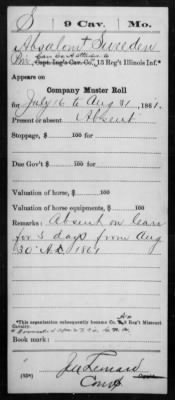 S 9 Cav. Mo.
Absalom Sweeden
Pvt., Capt. Ing's Cav. Co., 13 Reg't Illinois Inf.*
Appears on
Company Muster Roll
for July 16 to Aug 31, 1861.
Present or absent Absent
Stoppage, $ 100 for
Due Gov't $ 100 for
Valuation of horse, $ 100
Valuation of horse equipments, $ 100
Remarks: Absent on leave
for 5 days from Aug
30" A.D. 1861
*This organization subsequently became Co. Reg't Missouri
Cavalry.
Book mark:
(858) Copyist.